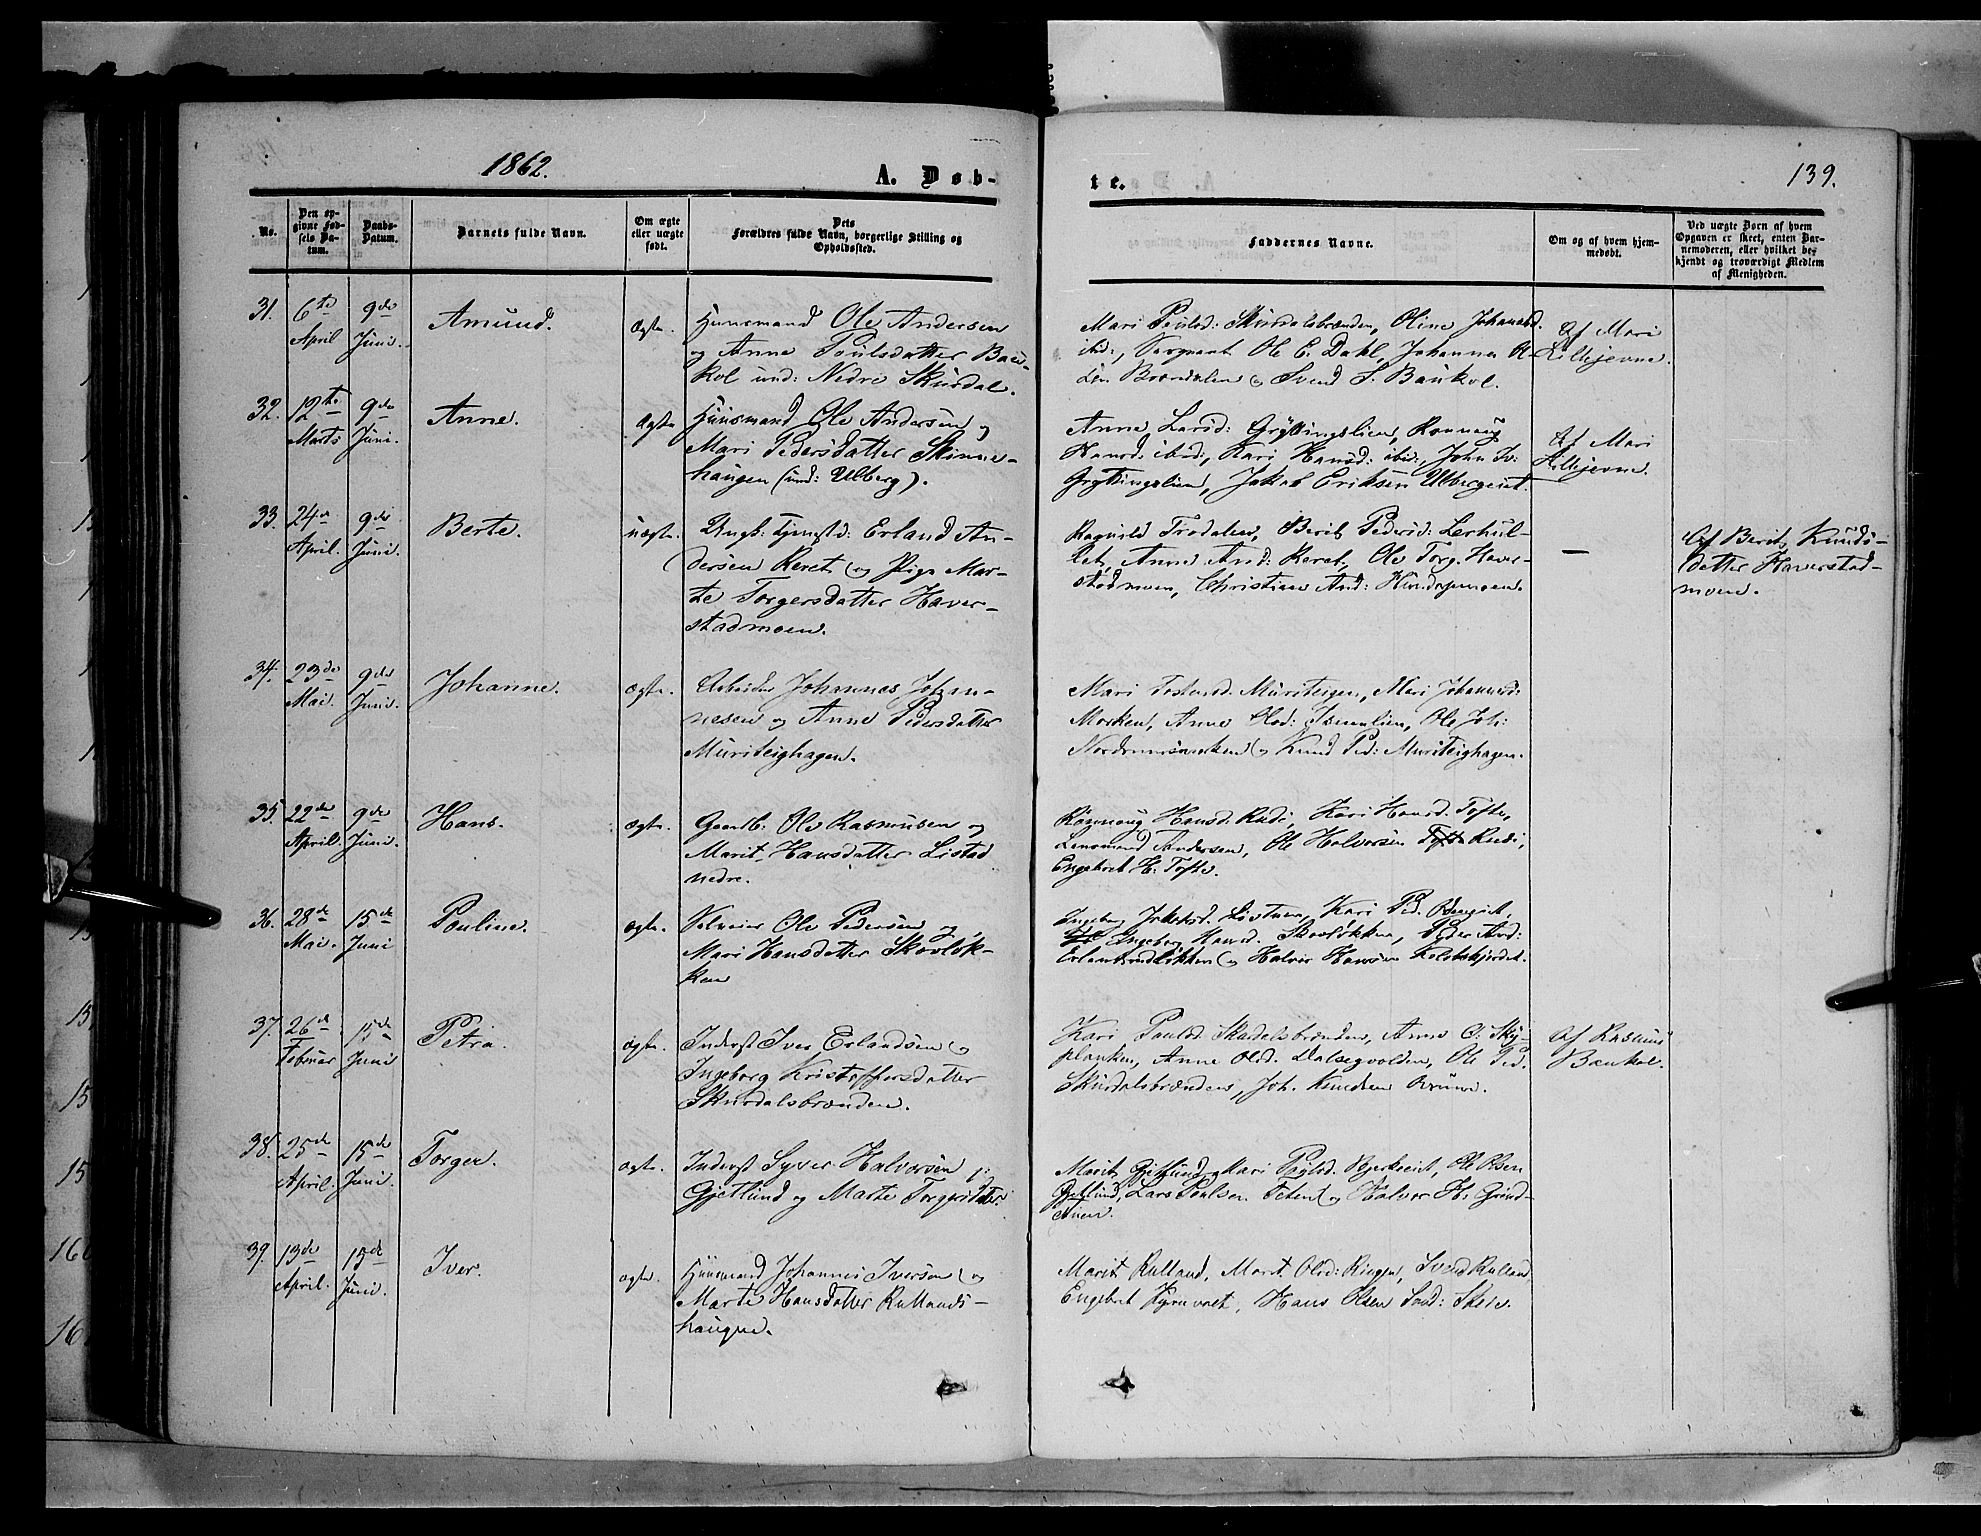 1862.
A. Døb-
te.
139.
No.
Den op-
givne Fød-
sels Da-
tum.
Daabs-
Datum.
Barnets fulde Navn.
Om ægte
eller uægte
født.
Dets
Forældres fulde Navn, borgerlige Stilling og
Opholdssted.
Faddernes Navne.
Om og af hvem hjem-
medøbt.
Ved uægte Børn af hvem
Opgaven er skeet, enten Bar-
nemoderen, eller hvilket be-
kjendt og troværdigt Medlem
af Menigheden.
31. 6te April 9de Juni. Amund. ægte.
Huusmand Ole Andersen
og Anne Poulsdatter Bau-
kol und: Nedre Skurdal.
Mari Poulsd: Skurdalsbrænden, Oline Johannsd.
ibd:, Sergeant Ole E. Dahl, Johannes
Brændalen og Svend S. Baukol.
Af Mari
Lillejevne.
32. 12te Marts 9de Juni. Anne. ægte
Huusmand Ole Andersen og
Mari Pedersdatter Skinne-
haugen (und: Ulberg).
Anne Larsd: Gryttingslien, Rønnaug
Hansd: ibid:, Kari Hansd: ibid:, John Iv:
Gryttingslien, Jakob Eriksen Ulbergeiet.
Af Mari
Lillejevne.
33. 24de April. 9de Juni. Berte. uægte.
Ungk: Tjenstd: Erland An-
dersen Keret og Pige Mar-
te Torgersdatter Haver-
stadmoen.
Ragnild Trodalen, Berit Pedersd: Lerhul-
let, Anne And: Keret, Ole Torg. Haver-
stadmoen, Christian And:
—
Af Berit Knuds-
datter Haverstad-
moen.
34. 23de Mai. 9de Juni. Johanne. ægte.
Arbeider Johannes Johan-
nesen og Anne Pedersdatter
Muriteighagen.
Mari Tostensd: Muriteigen, Mari Johannsd:
Morken, Anne Olsd: Ole Joh:
og Knud Ped: Muriteighagen.
35. 22de April. 9de Juni. Hans. ægte.
Gaardb: Ole Rasmusen og
Marit Hansdatter Listad
nedre.
Rønnaug Hansd. Rudi, Kari Hansd. Tofte,
Lensmand Andersen, Ole Halvorsen Tofte Rudi,
Engebret H. Tofte.
36. 28de Mai. 15de Juni Pouline. ægte.
Selveier Ole Pedersen og
Mari Hansdatter Skovløk-
ken
Ingeborg Jakobsd. Kari Ped.
Ingeborg Hansd. Skovløkken, Peder And:
Erlandsrudløkken og Halvor Hansen
37. 26de Februar 15de Juni Petra. ægte.
Inderst Iver Erlandsen og
Ingeborg Kristoffersdatter
Skurdalsbrænden.
Kari Paulsd. Skurdalsbrænden, Anne C: Sky-
planken, Anne Olsd. Dalsegvolden, Ole Ped.
Skurdalsbrænden, Joh. Knudsen
Af Rasmus
Baukol.
38. 25de April. 15de Juni. Torger. ægte.
Inderst Syver Halvorsen
Gjetlund og Marte Torgersdtter.
Marit Gjetlund, Mari Ole Olsen
Gjetlund, Lars Poulsen og Halvor H: Grind-
stuen.
39. 13de April. 15de Juni. Iver. ægte.
Huusmand Johannes Iversen og
Marte Hansdatter Rullands-
haugen.
Marit Rulland, Marit Olsd: Ringen, Svend Rulland
Engebret Hans Olsen Skeie.